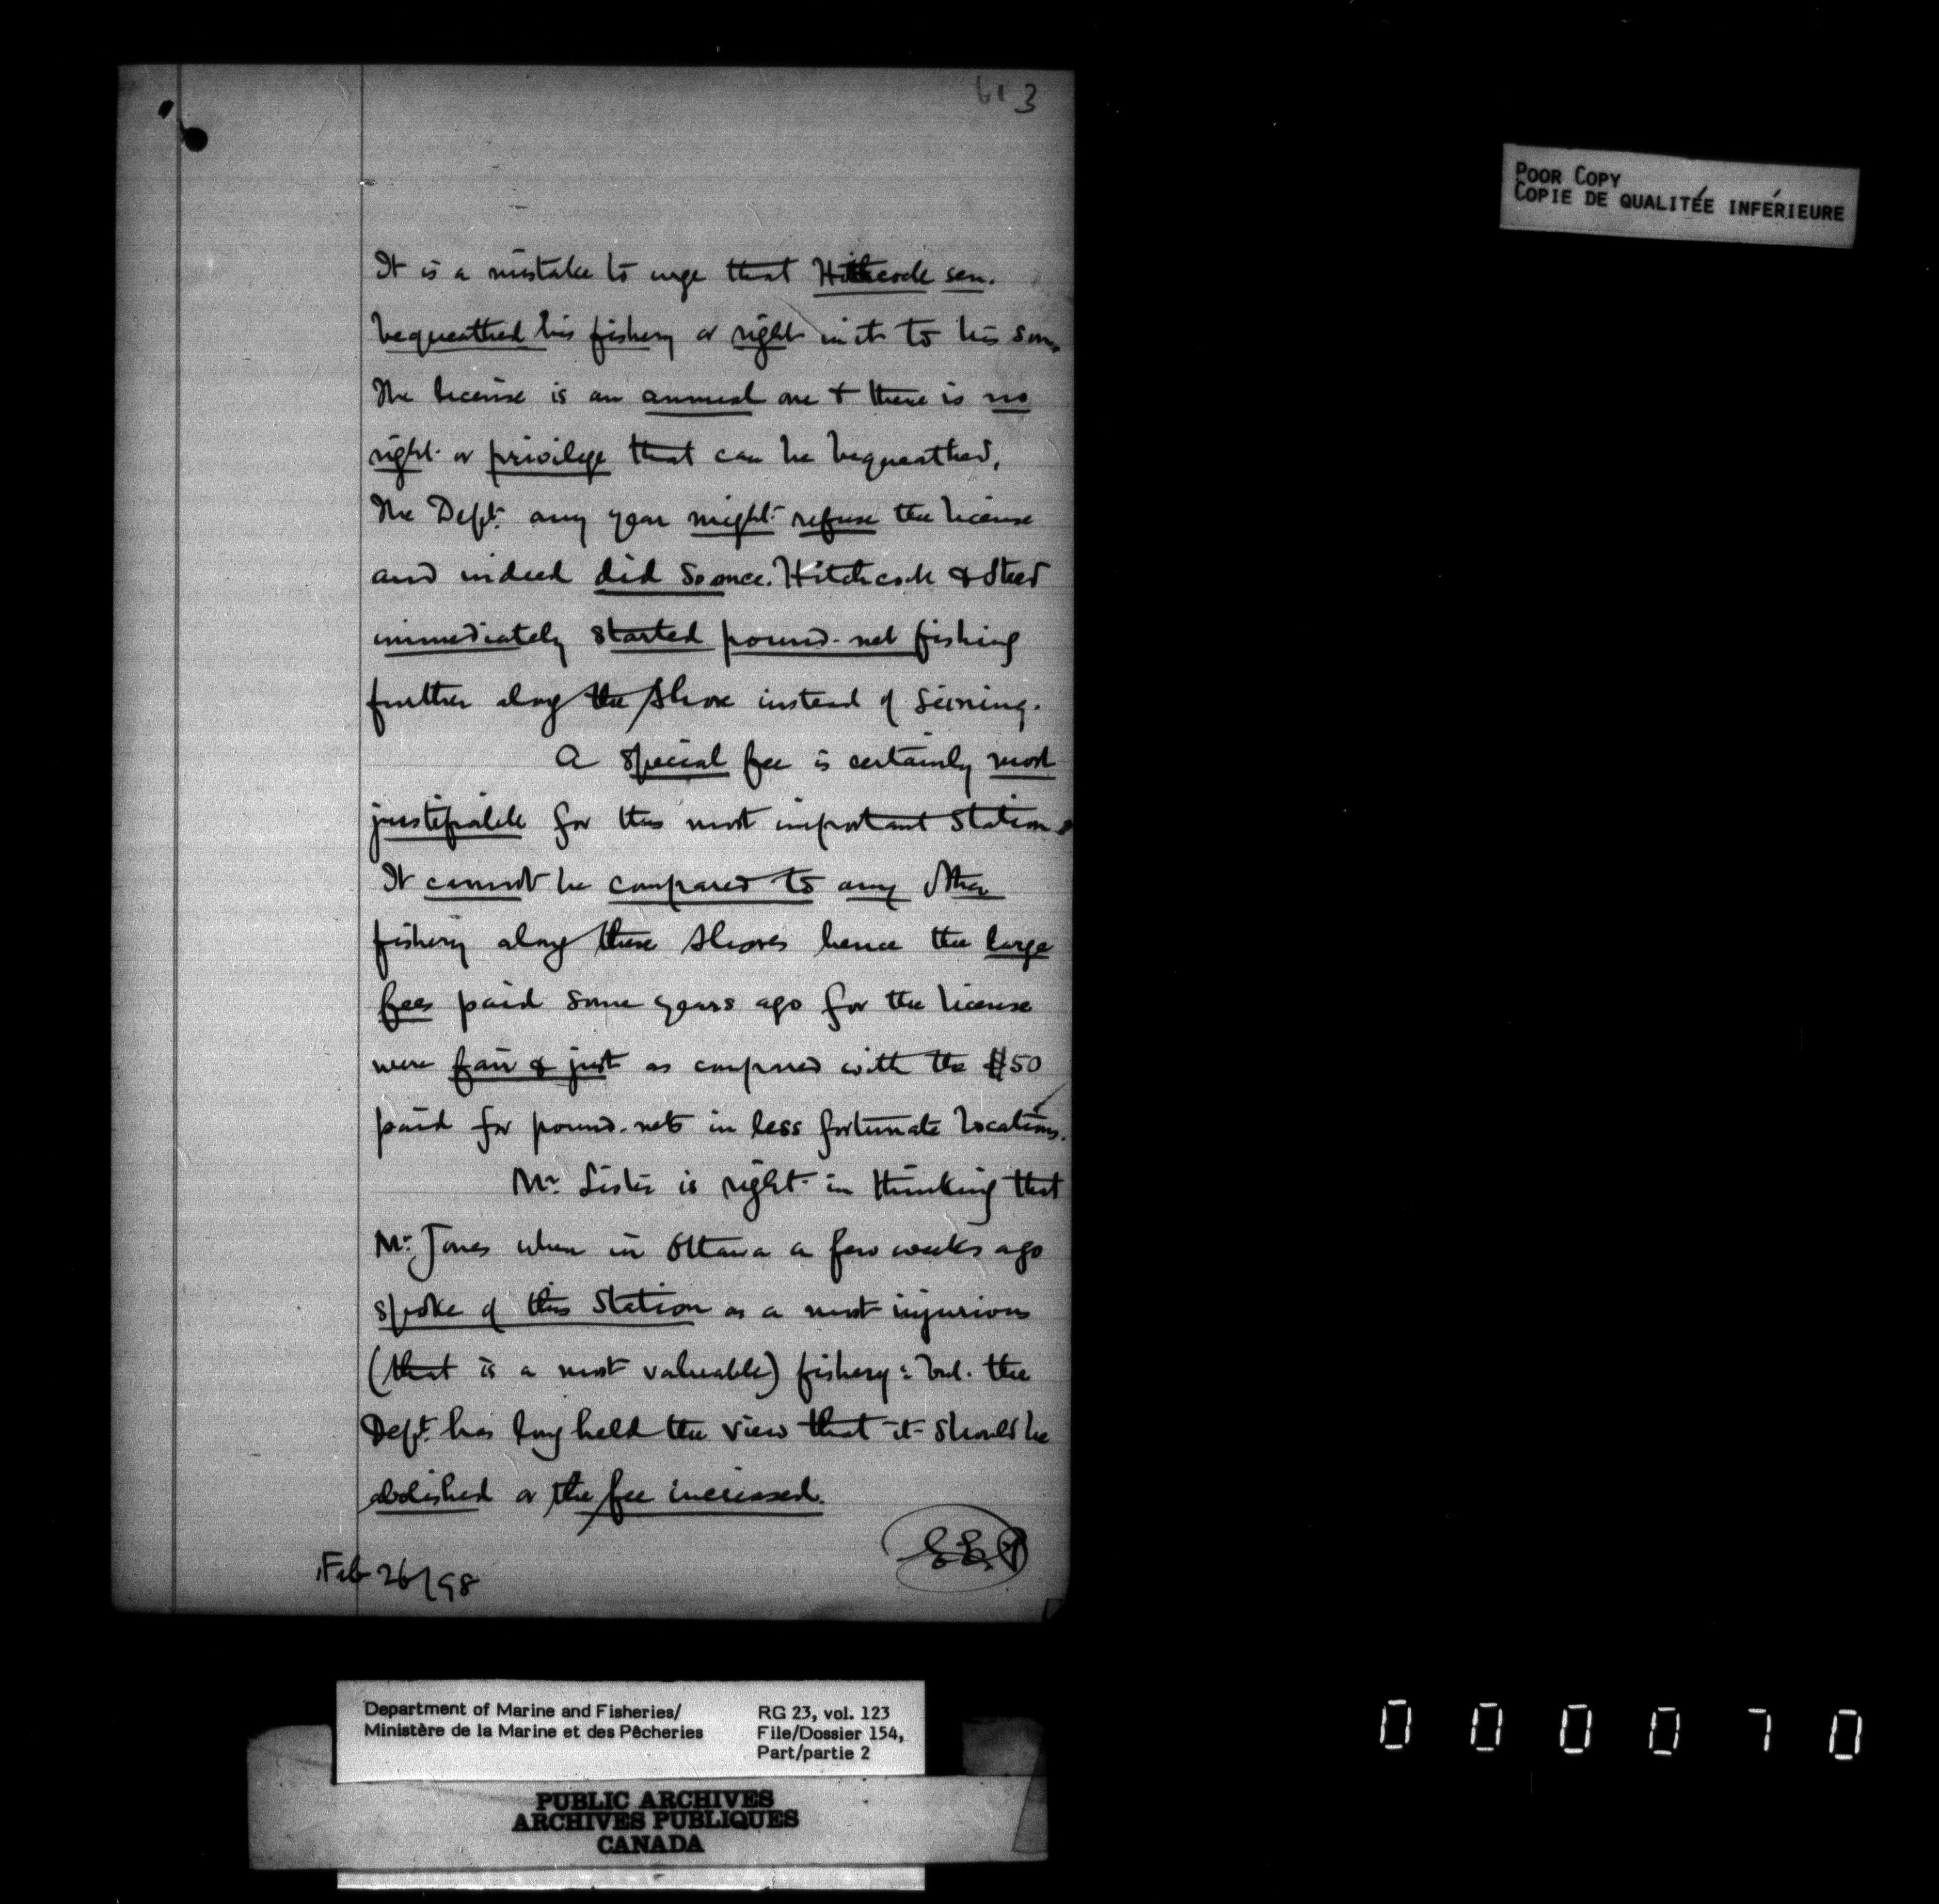 3
POOR COPY
COPIE DE QUALITÉE INFÉRIEURE
It is a mistake to urge that Hitchcock sen.
bequeathed his fishery or right in it to his son.
The license is an annual one + there is no
right or privilege that can be bequeathed,
The Dept. any year might refuse the license
and indeed did so once. Hitchcock &
immediately started pound-net fishing
further along the shore instead of seining.
A special fee is certainly most
justifiable for this most important station.
It cannot be compared to any other
fishery along these shores hence the large
fees paid some years ago for the license
were fair & just as compared with the $50
paid for pound-nets in less fortunate locations.
Mr. Lister is right in thinking that
Mr. Jones when in Ottawa a few weeks ago
spoke of this station as a most injurious
(that is a most valuable) fishery: but the
Dept. has long held the view that it should be
abolished or the fee increased.
E.E.P
Feb 26/98
Department of Marine and Fisheries/
Ministère de la Marine et des Pêcheries
RG 23, vol. 123
File/Dossier 154,
Part/partie 2
PUBLIC ARCHIVES
ARCHIVES PUBLIQUES
CANADA
000070